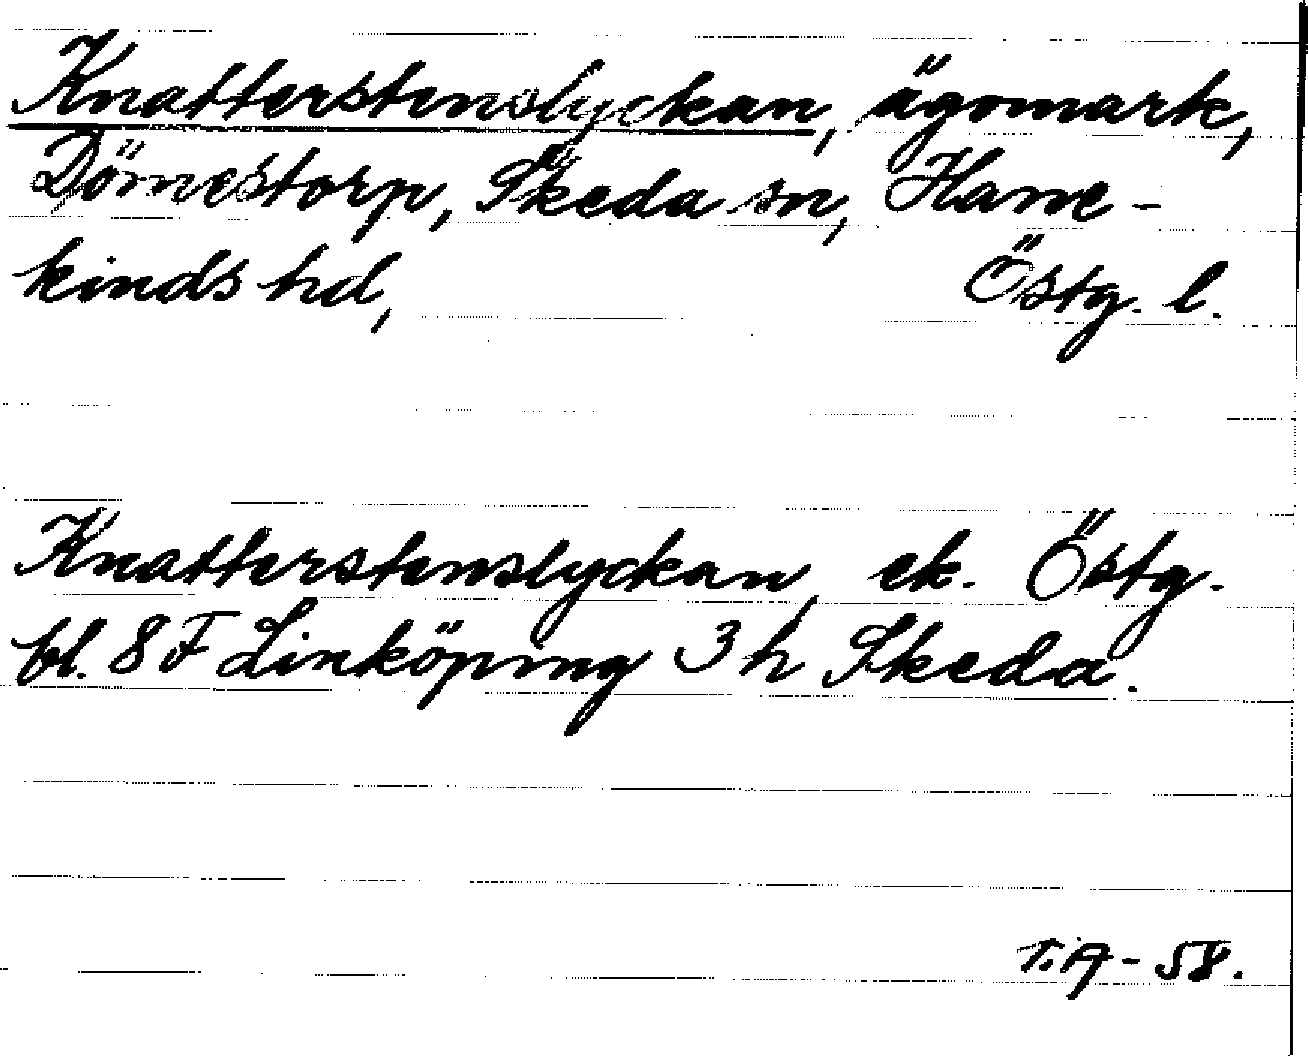 Knatterstenslyckan, ägomark,
Dömestorp, Skeda sn, Hane-
kinds hd, Östg. l.
Knatterstenslyckan, ek. Östg.
bl. 8 F Linköping 3 h Skeda.
T.A - 58.